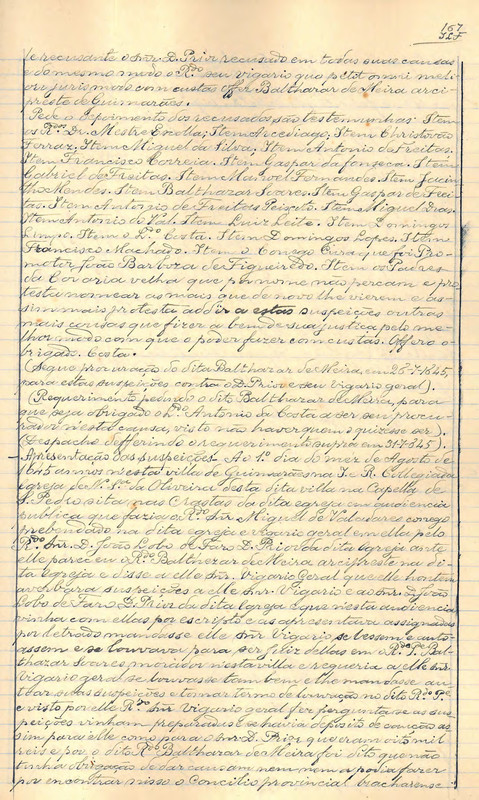 167
e recusante o Snr. D. Prior recusado em todas suas causas
e do mesmo modo o Rdo seu vigario quo petit omni meli
ori juris modo com custas offer Balthazar de Meira arci
preste de Guimarães.
Pede o depoimento dos recusados são testemunhas: Item
os Rdos Dr. Mestre Escolla; Item Arcediago; Item Christovão
Ferraz; Item Miguel da Silva, Item Antonio de Freitas.
Item Francisco Correia. Item Gaspar da fonseca. Item
Gabriel de Freitas. Item Manoel Fernandes. Item Jacin
tho Mendes. Item Balthazar Soares. Item Gaspar de Frei
tas. Item Antonio de Freitas Peixoto. Item Miguel Dias.
Item Antonio do Val. Item Luiz Leite. Item Domingos
Limpo. Item o Ldo Costa. Item Domingos Lopes. Item
Francisco Machado. Item o Conego Cura que foi Pro
motor, João Barboza de Figueiredo. Item os Padres
da Covaria velha que por nome não percam e pro
testa nomear as mais que de novo lhe vierem e as
sim mais protesta addir a estas suspeições outras
mais causas que fizer a bem de sua justiça pelo me
lhor modo com que o poder fazer com custas. Offero o
brigado. Costa.
(Segue procuração do dito Balthazar de Meira, em 28-7-1645,
para estas suspeições contra o D. Prior e seu vigario geral).
(Requerimento pedindo o dito Balthazar de Meira, para
que seja obrigado o Ldo Antonio da Costa a ser seu procu
rador n'esta causa, visto não haver quem o quizesse ser).
(Despacho defferindo o requerimento supra em 31-7-645).
Apresentação das suspeições. Ao 1º dia do mez de Agosto de
1645 annos n'esta villa de Guimarães na I. R. Collegiada
igreja de N. Sra da Oliveira desta dita villa na Capella de
S. Pedro sita nas Crastas da dita egreja em audiencia
publica que fazia o Rdo Snr. Miguel de Valadares conego
prebendado na dita egreja e vigario geral em ella pelo
Rdo Snr. D. João Lobo de Faro D. Prior da dita egreja ante
elle pareceu o Rdo Balthezar de Meira arcipreste na di
ta Egreja e disse a elle Snr. Vigario Geral que elle hontem
averbara suspeições a elle Snr. Vigario e ao Snr. D. João
Lobo de Faro D. Prior da dita Egreja e que nesta audiencia
vinha com ellas por escripto e as apresentava assignadas
por letrado mandasse elle Snr Vigario se lessem e auto
assem e se louvava para ser juiz dellas em o Rdo Pe Bal
thazar Soares morador nesta villa e requeria a elle Snr.
Vigario geral se louvasse tambem e lhe mandasse au
tuar suas suspeições e tomar termo de louvação no dito Rdo Pe
e visto por elle Rdo Snr Vigario geral fez pergunta se as sus
peições vinham preparadas e se havia deposito de caução as
sim para elle como para o Snr. D. Prior que eram oito mil
reis e por o dito Rdo Balthazar de Meira foi dito que não
tinha obrigação de dar caução nem nem a podia fazer
por encontrar nisso o Concilio provincial bracharense